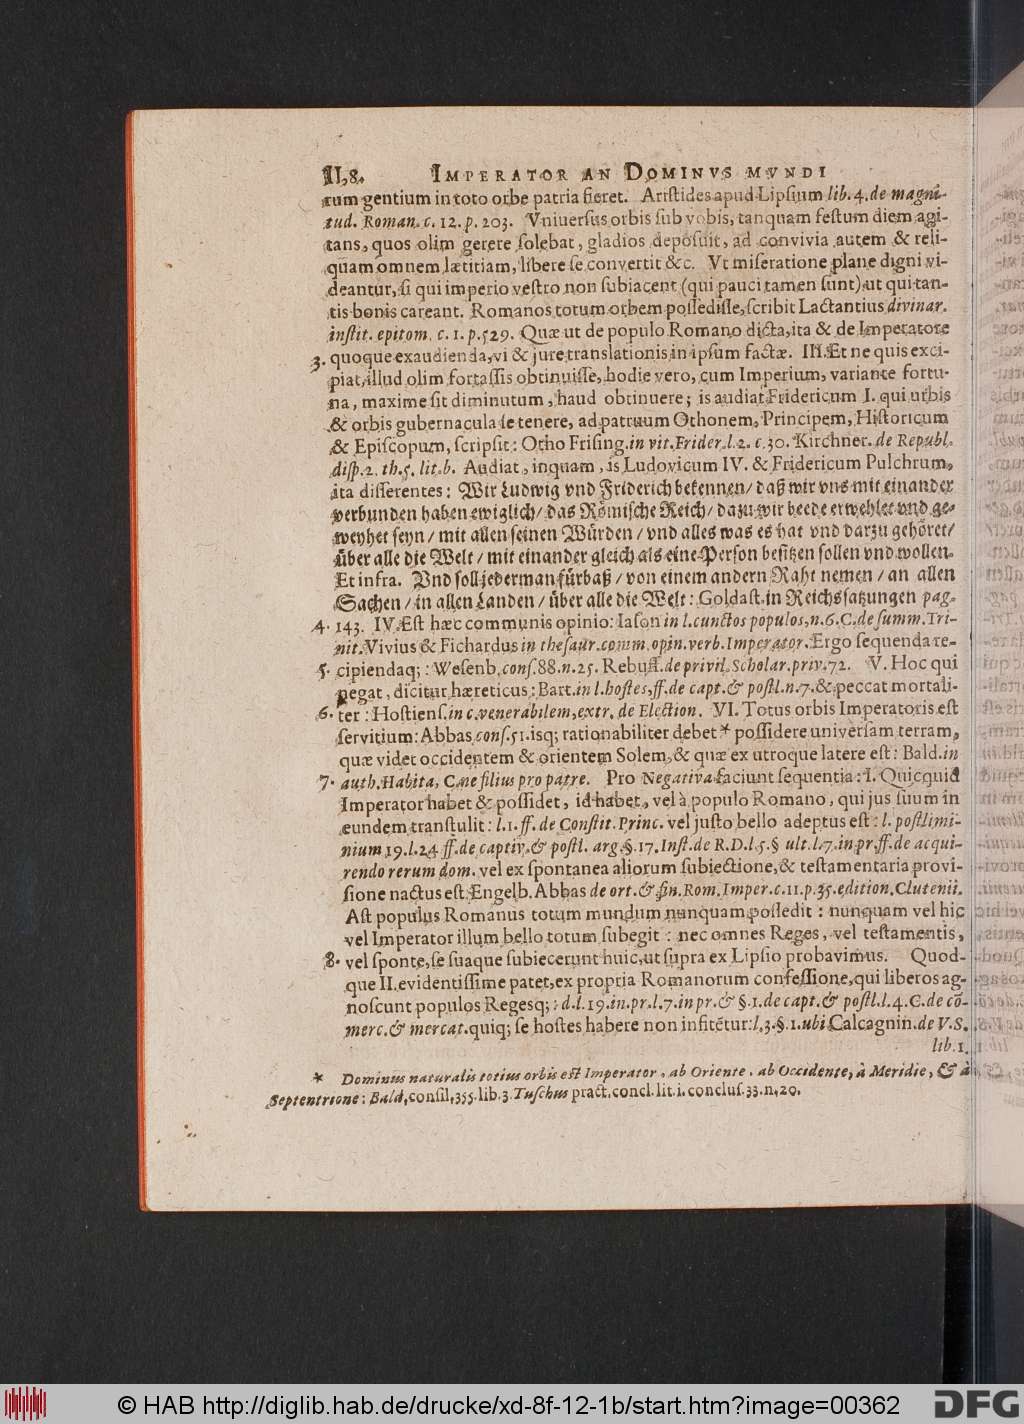 II,8. IMPERATOR AN DOMINVS MVNDI
tum gentium in toto orbe patria fieret. Aristides apud Lipsium lib. 4. de magni-
tud. Roman. c. 12. p. 203. Vniversus orbis sub vobis, tanquam festum diem agi-
tans, quos olim gerere solebat, gladios deposuit, ad convivia autem & reli-
quam omnem lætitiam, libere se convertit &c. Vt miseratione plane digni vi-
deantur, si qui imperio vestro non subiacent (qui pauci tamen sunt) ut qui tan-
tis bonis careant. Romanos totum orbem possedisse, scribit Lactantius divinar.
instit. epitom. c. 1. p. 529. Quæ ut de populo Romano dicta, ita & de Imperatore
3. quoque exaudienda, vi & jure translationis in ipsum factæ. III. Et ne quis exci-
piat, illud olim fortassis obtinuisse, hodie vero, cum Imperium, variante fortu-
na, maxime sit diminutum, haud obtinere; is audiat Fridericum I. qui urbis
& orbis gubernacula se tenere, ad patruum Othonem, Principem, Historicum
& Episcopum, scripsit: Otho Frising. in vit. Frider. l. 2. c. 30. Kirchner. de Republ.
disp. 2. th. 5. lit. b. Audiat, inquam, is Ludovicum IV. & Fridericum Pulchrum,
ita disserentes: Wir Ludwig vnd Friderich bekennen/ daß wir vns mit einander
verbunden haben ewiglich/ das Römische Reich/ dazu wir beede erwehlet vnd ge-
weyhet seyn/ mit allen seinen Würden/ vnd alles was es hat vnd darzu gehöret/
über alle die Welt/ mit einander gleich als eine Person besitzen sollen vnd wollen.
Et infra. Vnd soll jederman fürbaß/ von einem andern Raht nemen/ an allen
Sachen/ in allen Landen/ über alle die Welt: Goldast. in Reichssatzungen pag.
4. 143. IV. Est hæc communis opinio: Iason in l. cunctos populos, n. 6. C. de summ. Tri-
nit. Vivius & Fichardus in thesaur. comm. opin. verb. Imperator. Ergo sequenda re-
5. cipiendaq;: Wesenb. cons. 88. n. 25. Rebuff. de privil. Scholar. priv. 72. V. Hoc qui
negat, dicitur hæreticus: Bart. in l. hostes, ff. de capt. & postl. n. 7. & peccat mortali-
6. ter: Hostiens. in c. venerabilem, extr. de Election. VI. Totus orbis Imperatoris est
servitium: Abbas cons. 51. isq; rationabiliter debet * possidere universam terram,
quæ videt occidentem & orientem Solem, & quæ ex utroque latere est: Bald. in
7. auth. Habita, C. ne filius pro patre. Pro Negativa faciunt sequentia: I. Quicquid
Imperator habet & possidet, id habet, vel à populo Romano, qui jus suum in
eundem transtulit: l. 1. ff. de Constit. Princ. vel justo bello adeptus est: l. postlimi-
nium 19. l. 24. ff. de captiv. & postl. arg. §. 17. Inst. de R. D. l. 5. § ult. l. 7. in pr. ff. de acqui-
rendo rerum dom. vel ex spontanea aliorum subiectione, & testamentaria provi-
sione nactus est. Engelb. Abbas de ort. & fin. Rom. Imper. c. 11. p. 35. edition. Clutenii.
Ast populus Romanus totum mundum nunquam possedit: nunquam vel hic
vel Imperator illum bello totum subegit: nec omnes Reges, vel testamentis,
8. vel sponte, se suaque subiecerunt huic, ut supra ex Lipsio probavimus. Quod-
que II. evidentissime patet, ex propria Romanorum confessione, qui liberos ag-
noscunt populos Regesq;: d. l. 19. in. pr. l. 7. in pr. & §. 1. de capt. & postl. l. 4. C. de cõ-
merc. & mercat. quiq; se hostes habere non infitẽtur: l. 3. §. 1. ubi Calcagnin. de V. S.
lib. 1.
* Dominus naturalis totius orbis est Imperator, ab Oriente, ab Occidente, à Meridie, & à
Septentrione: Bald, consil, 355. lib. 3. Tuschus pract. concl. lit. i. conclus. 33. n. 20.
© HAB http://diglib.hab.de/drucke/xd-8f-12-1b/start.htm?image=00362
DFG